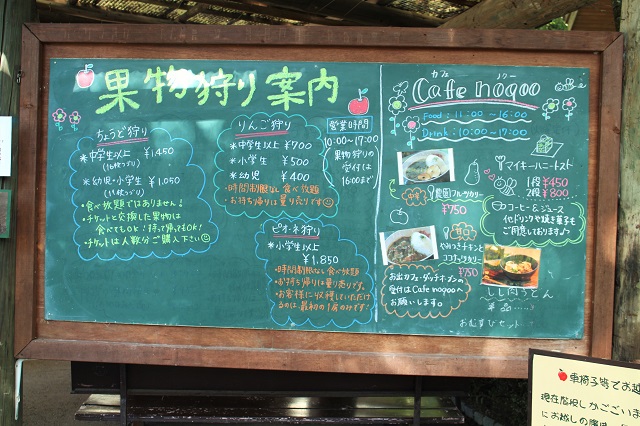 果物狩り案内
ちょうど狩り
*中学生以上 ¥1,450
*幼児・小学生 ¥1,050
・食べ放題ではありません!
・チケットと交換した果物は
食べてもOK!持って帰ってもOK!
・チケットは人数分ご購入下さい
りんご狩り
*中学生以上 ¥700
*小学生 ¥500
*幼児 ¥400
・時間制限なし食べ放題
・お持ち帰りは量り売りです
営業時間
10:00~17:00
果物狩りの
受付は
16:00まで
ピオーネ狩り
*小学生以上
¥1,850
・時間制限なし食べ放題
・お持ち帰りは量り売りです。
・お客様に収穫していただけ
るのは最初の1房のみです!
カフェ ノクー
Cafe noqoo
Food:11:00~16:00
Drink:10:00~17:00
農園フルーツカリー
¥750
やみつきチキン
ココナッツカリー
¥750
お出カフェ・ダッチオーブンの
受付はCafe noqooへ
お願いします。
マイキーハニートスト
1段¥450
2段¥800
コーヒー&ジュース
他ドリンクや焼き菓子も
ご用意しております♪
しし肉うどん
単品
おむすびセット
車椅子等でお越
現在傷損しかございま
にお越しの際